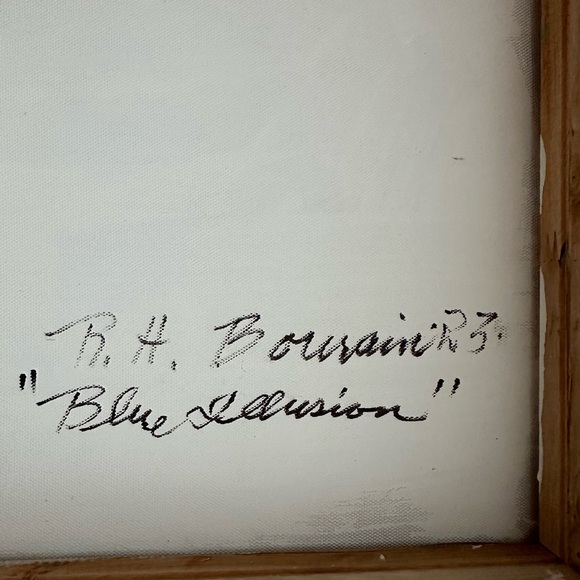 R. H. Bourain '23
"Blue Illusion"